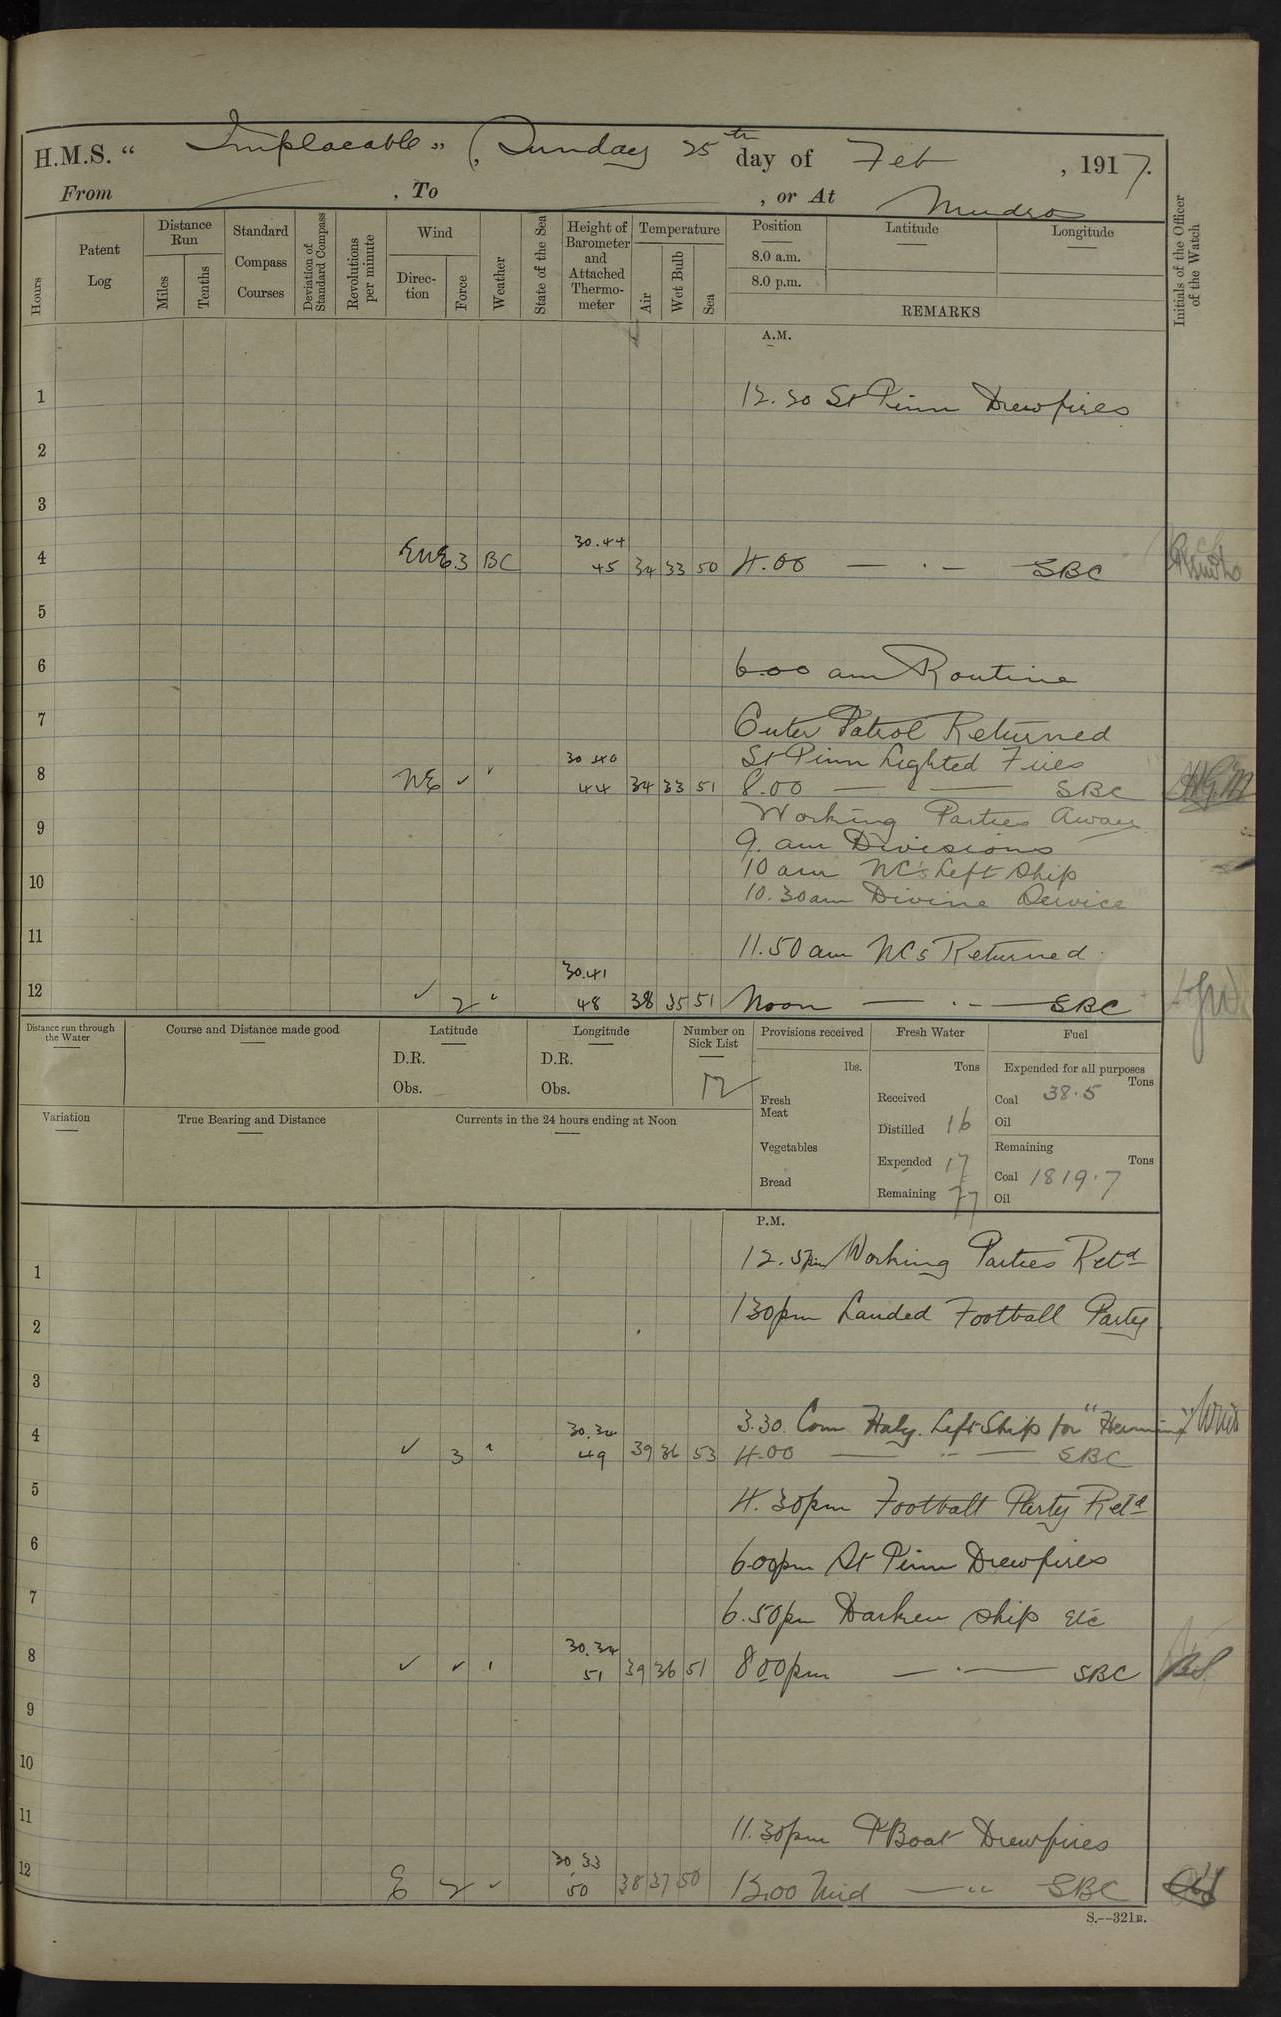 H.M.S. “ Implacable ” (, Sunday 25th day of Feb , 1917.
From , To , or At Mudros
Hours
Patent Log
Distance Run
Miles
Tenths
Standard Compass Courses
Deviation of Standard Compass
Revolutions per minute
Wind
Direction
Force
Weather
State of the Sea
Height of Barometer and Attached Thermometer
Temperature
Air
Wet Bulb
Sea
Position
8.0 a.m.
8.0 p.m.
Latitude
Longitude
REMARKS
Initials of the Officer of the Watch
A.M.
1 12.30 St Pinn Drew fires
2
3
30.44
4 ENE 3 BC 45 34 33 50 4.00 SBC
5
6 6.00 am Routine
7 Outer Patrol Returned
30.40 St Pinn Lighted Fires
8 NE ✓ " 44 34 33 51 8.00 SBC
Working Parties Away
9 9. am Divisions
10 am NC's Left Ship
10 10.30am Divine Service
11 11.50 am NCs Returned
30.41
12 ✓ 2 " 48 38 35 51 Noon SBC
Distance run through the Water
Course and Distance made good
Latitude
D.R.
Obs.
Longitude
D.R.
Obs.
Number on Sick List
12
Provisions received
lbs.
Fresh Meat
Vegetables
Bread
Fresh Water
Tons
Received
Distilled 16
Expended 17
Remaining 77
Fuel
Expended for all purposes
Tons
Coal 38.5
Oil
Remaining
Tons
Coal 1819.7
Oil
Variation
True Bearing and Distance
Currents in the 24 hours ending at Noon
P.M.
1 12.5pm Working Parties Retd
2 1 30pm Landed Football Party
3
30.34 3.30. Com Haly. Left Ship for
4 ✓ 3 " 49 39 36 53 4.00 SBC
5 4.30pm Football Party Retd
6 6.00pm St Pinn Drew fires
7 6.50pm Darken ship etc
30.34
8 ✓ ✓ " 51 39 36 51 8 00pm SBC
9
10
11 11.30pm PBoat Drew fires
30.33
12 E 2 ✓ 50 38 37 50 12.00 Mid SBC
S.—321E.